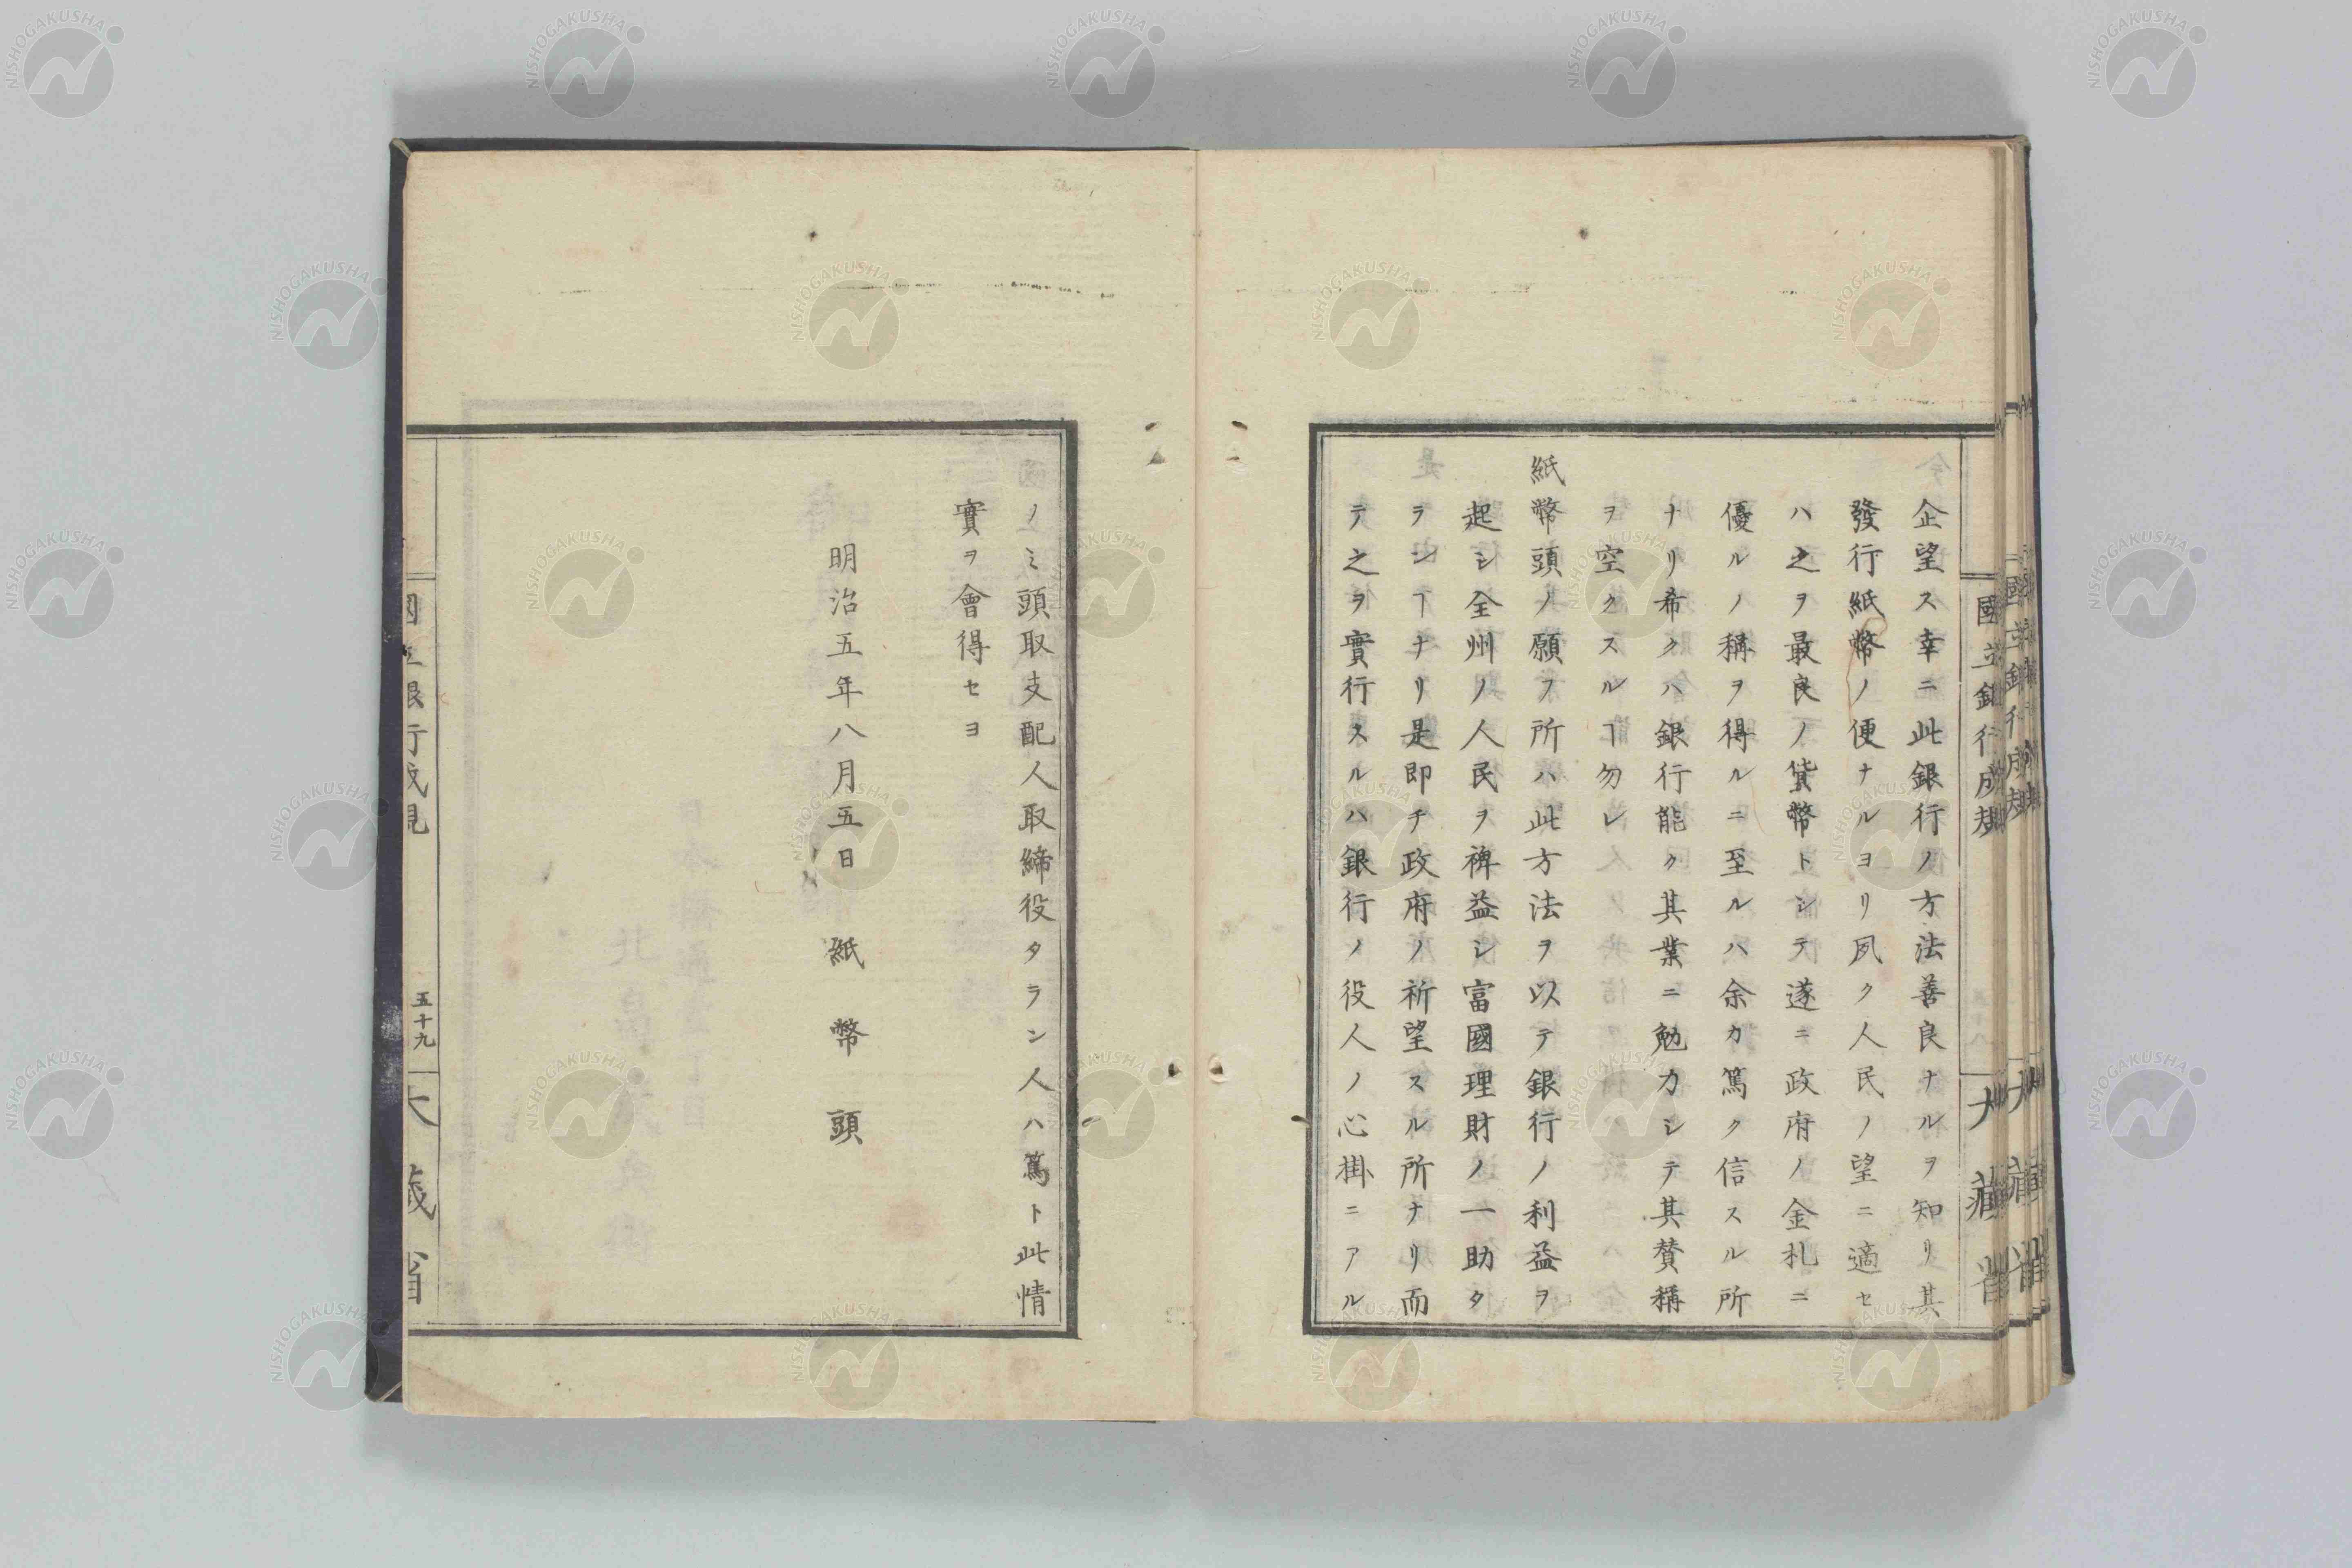 國立銀行成規
大藏省
企望ス幸ニ此銀行ノ方法善良ナルヲ知リ其
發行紙幣ノ便ナルヨリ夙ク人民ノ望ニ適セ
ハ之ヲ最良ノ貨幣トシテ遂ニ政府ノ金札ニ
優ルノ稱ヲ得ルニ至ルハ余カ篤ク信スル所
ナリ希クハ銀行能ク其業ニ勉力シテ其賛稱
ヲ空クスルヿ勿レ
紙幣頭ノ願フ所ハ此方法ヲ以テ銀行ノ利益ヲ
起シ全州ノ人民ヲ裨益シ富國理財ノ一助タ
ランヿナリ是即チ政府ノ祈望スル所ナリ而
テ之ヲ實行スルハ銀行ノ役人ノ心掛ニアル
ノミ頭取支配人取締役タラン人ハ篤ト此情
實ヲ會得セヨ
明治五年八月五日 紙幣頭
國立銀行成規
五十九
大藏省
NISHOGAKUSHA